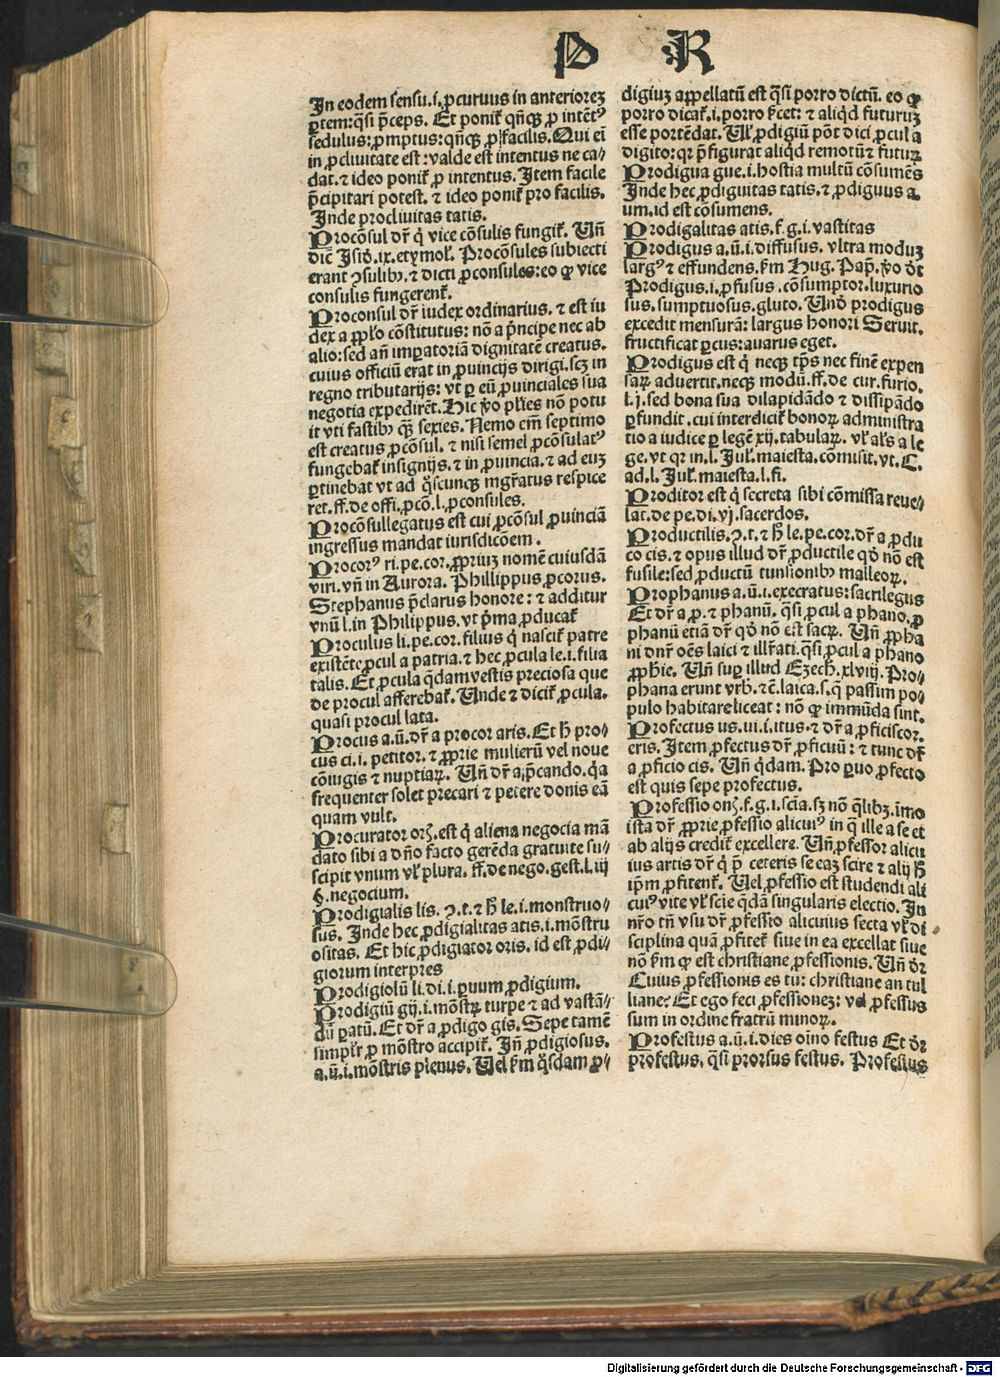 P R
In eodem sensu.i.ꝓcuruus in anteriorez
ꝑtem:q̃si p̃ceps. Et poniť qñqꝫ ꝓ intẽtꝰ
sedulus:ꝓmptus:qñqꝫ ꝓ facilis. Qui eñ
in ꝓcliuitate est:valde est intentus ne ca⸗
dat.⁊ ideo poniť ꝓ intentus. Item facile
p̃cipitari potest. ⁊ ideo poniť pro facilis.
Inde procliuitas tatis.
Procõsul dr̃ q̇ vice cõsulis fungiť. Uñ
dic̃ Isiď.ix.etymoł. Procõsules subiecti
erant ꝯsulibꝫ.⁊ dicti ꝓconsules:eo ꝙ vice
consulis fungerenť.
Proconsul dr̃ iudex ordinarius. ⁊ est iu
dex a ppło cõstitutus: nõ a p̃ncipe nec ab
alio:sed añ imꝑatoriã dignitatẽ creatus.
cuius officiũ erat in ꝓuincijs dirigi.scꝫ in
regno tributarijs: vt ꝑ eũ ꝓuinciales sua
negotia expedirẽt. Hic ṽo pl̃es nõ potu
it vti fastibꝫ qꝫ sexies. Nemo cm̃ septimo
est creatus ꝓcõsul. ⁊ nisi semel ꝓcõsulatꝰ
fungebať insignijs.⁊ in ꝓuincia.⁊ ad euꝫ
ꝑtinebat vt ad q̃scunqꝫ mgr̃atus respice
ret.ff.de offi.ꝓcõ.l.ꝓconsules.
Procõsullegatus est cui ꝓcõsul ꝓuinciã
ingressus mandat iurisdicõem.
Procorꝰ ri.pe.cor.ꝓpriuꝫ nomẽ cuiusdã
viri.vñ in Aurora. Phillippus ꝓcorus.
Stephanus p̃clarus honore:⁊ additur
vnũ l.in Philippus.vt p̃ma ꝓducať
Proculus li.pe.cor.filius q̇ nasciť patre
existẽte ꝓcul a patria.⁊ hec ꝓcula le.i.filia
talis. Et ꝓcula q̃dam vestis preciosa que
de procul afferebať. Unde ⁊ diciť ꝓcula.
quasi procul lata.
Procus a.ũ.dr̃ a procor aris. Et h̃ pro⸗
cus ci.i.petitor.⁊ ꝓprie mulierũ vel noue
cõiugis ⁊ nuptiaꝝ. Uñ dr̃ a p̃cando.q̇a
frequenter solet precari ⁊ petere donis eã
quam vult.
Procurator orꝫ.est q̇ aliena negocia mã
dato sibi a dño facto gerẽda gratuite su⸗
scipit vnum vł plura. ff.de nego.gest.l.iij
§.negocium.
Prodigialis lis. ꝯ.t.⁊ h̃ le.i.monstruo⸗
sus. Inde hec ꝓdigialitas atis.i.mõstru
ositas. Et hic ꝓdigiator oris. id est ꝓdi⸗
giorum interpres
Prodigiolũ li.di.i.ꝑuum ꝓdigium.
Prodigiũ gij.i.mõstꝝ turpe ⁊ ad vastã⸗
dũ ꝑatũ. Et dr̃ a ꝓdigo gis. Sepe tamẽ
simplř ꝓ mõstro accipiť. Iñ ꝓdigiosus.
a.ũ.i.mõstris plenus. Uel ẜm q̃sdam ꝓ⸗
digiuꝫ appellatũ est q̃si porro dictũ. eo ꝙ
porro dicať.i.porro ẜcet:⁊ aliq̇d futuruꝫ
esse portẽdat. Uł ꝓdigiũ põt dici ꝓcul a
digito:qꝛ p̃figurat aliq̇d remotũ ⁊ futuꝝ
Prodigua gue.i.hostia multũ cõsumẽs
Inde hec ꝓdiguitas tatis.⁊ ꝓdiguus a.
um.id est cõsumens.
Prodigalitas atis.f.g.i.vastitas
Prodigus a.ũ.i.diffusus. vltra moduꝫ
largꝰ ⁊ effundens.ẜm Hug. Pap.ṽo dt̃
Prodigus.i.ꝓfusus.cõsumptor.luxurio
sus.sumptuosus.gluto. Unď prodigus
excedit mensurã:largus honori Seruit.
fructificat ꝑcus:auarus eget.
Prodigus est q̇ neqꝫ tp̃s nec finẽ expen
saꝝ aduertit.neqꝫ modũ.ff.de cur.furio.
l.j.sed bona sua dilapidãdo ⁊ dissipãdo
ꝓfundit.cui interdiciť bonoꝝ administra
tio a iudice ꝑ legẽ xij.tabulaꝝ. vł al̃s a le
ge.vt qꝛ in.l.Iuł.maiesta.cõmisit.vt.C.
ad.l.Iuł.maiesta.l.fi.
Proditor est q̇ secreta sibi cõmissa reue⸗
lat.de pe.di.vj.sacerdos.
Productilis.ꝯ.t.⁊ h̃ le.pe.cor.dr̃ a ꝓdu
co cis.⁊ opus illud dr̃ ꝓductile qď nõ est
fusile:sed ꝓductũ tunsionibꝫ malleoꝝ.
Prophanus a.ũ.i.execratus:sacrilegus
Et dr̃ a ꝓ.⁊ phanũ.q̃si ꝓcul a phano.ꝓ
phanũ etiã dr̃ qď nõ est sacꝝ. Uñ ꝓpha
ni dnr̃ oẽs laici ⁊ illr̃ati.q̃si ꝓcul a phano
ꝓphie. Uñ suꝑ illud Ezech.xlviij. Pro⸗
phana erunt vrb.⁊c̃.laica.s.q̃ passim po⸗
pulo habitare liceat: nõ ꝙ immũda sint.
Profectus us.ui.i.itus.⁊ dr̃ a ꝓficiscor.
eris. Item ꝓfectus dr̃ ꝓficuũ:⁊ tunc dr̃
a ꝓficio cis. Uñ q̃dam. Pro ꝑuo ꝓfecto
est quis sepe profectus.
Professio onꝫ.f.g.i.scĩa.sꝫ nõ q̃libꝫ.ĩmo
ista dr̃ ꝓprie ꝓfessio alicuiꝰ in q̃ ille a se et
ab alijs crediť excellere. Uñ ꝓfessor alicu
ius artis dr̃ q̇ p̃ ceteris se eaꝫ scire ⁊ alij h̃
ip̃m ꝓfitenť. Uel ꝓfessio est studendi ali
cuiꝰ vite vł scĩe q̃dã singularis electio. In
nr̃o tñ vsu dr̃ ꝓfessio alicuius secta vł di
sciplina quã ꝓfiteť siue in ea excellat siue
nõ ẜm ꝙ est christiane ꝓfessionis. Uñ dr̃
Cuius ꝓfessionis es tu: christiane an tul
liane? Et ego feci ꝓfessionez: vel ꝓfessus
sum in ordine fratrũ minoꝝ.
Profestus a.ũ.i.dies oĩno festus Et dr̃
profestus.q̃si prorsus festus. Profestus
Digitalisierung gefördert durch die Deutsche Forschungsgemeinschaft - DFG